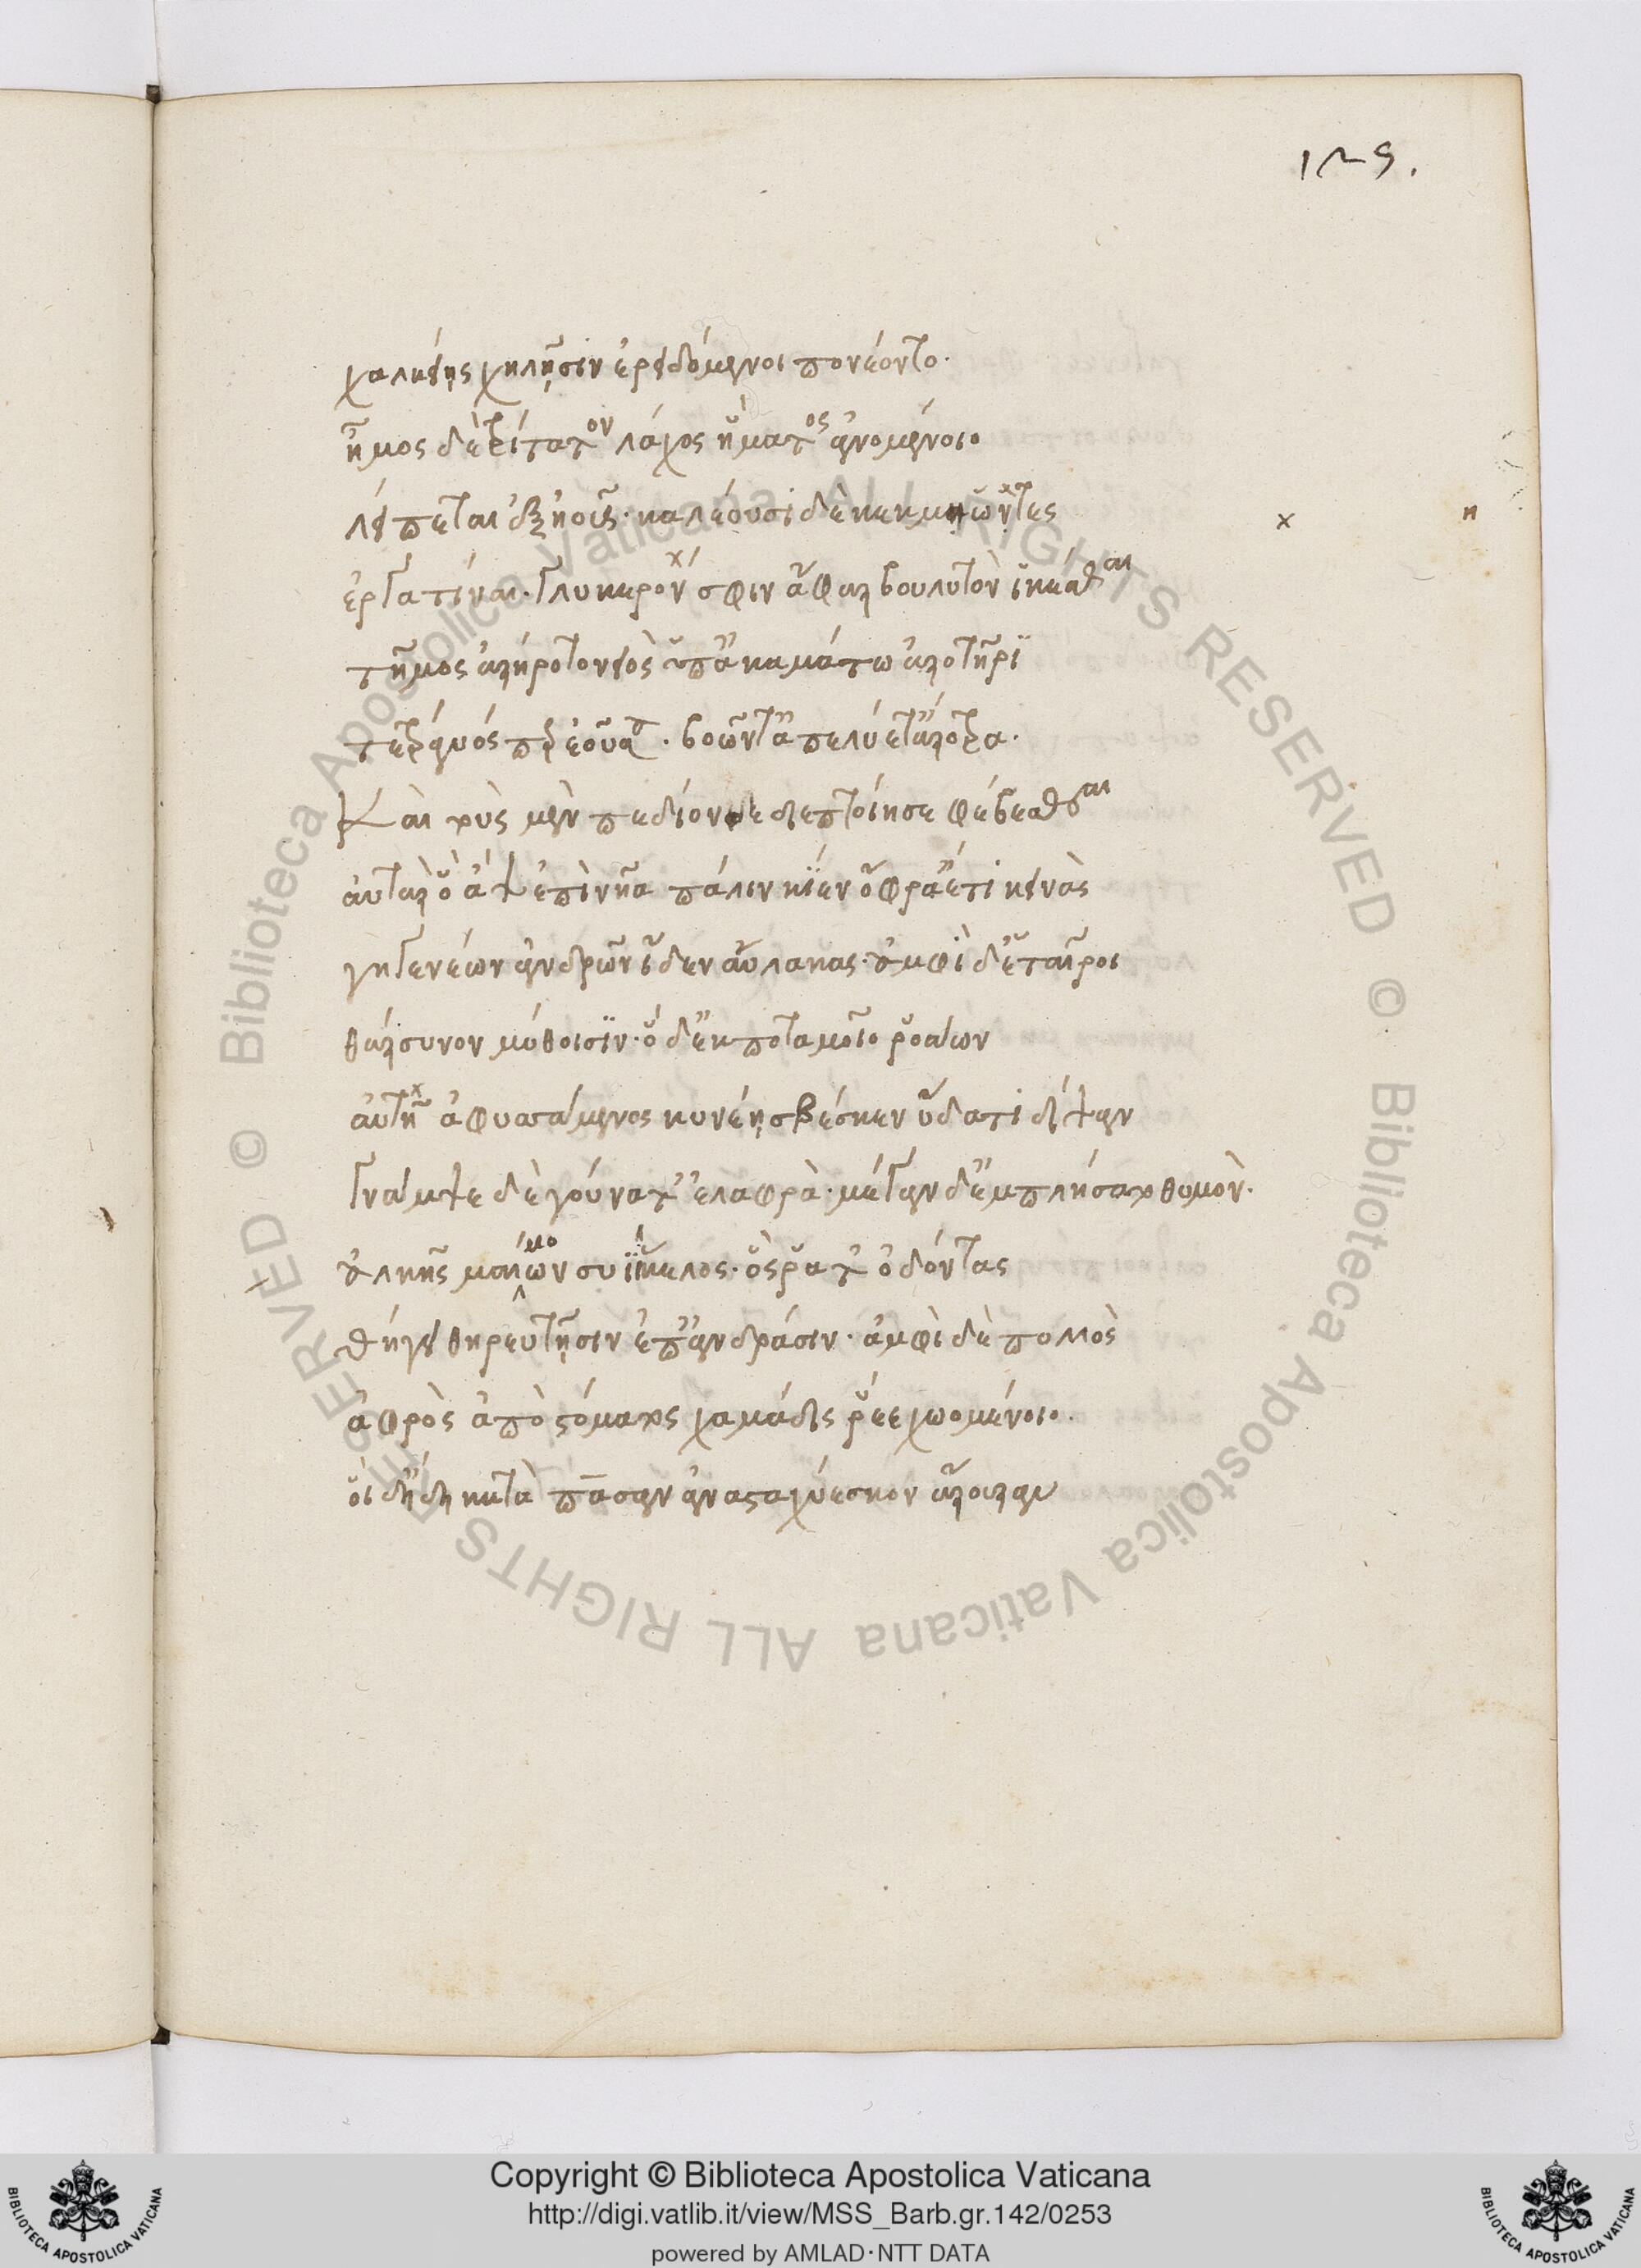 129.
χαλκείης χηλῆσιν ἐρειδόμενοι πονέοντο.
ἦμος δὲ τρίτατον λάχος ἤματος ἀνομένοιο
λείπεται ἐξ ἠοῦς· καλέουσι δὲ κεκμηῶντες
x
η
ἐργατίναι. γλυκερόν σφιν ἄφαρ βουλυτὸν ἱκέσθαι
τῆμος ἀρήροτο νειὸς ὑπ' ἀκαμάτω ἀροτῆρι
τετράγυός περ ἐοῦσα. βοῶν τ' ἀπελύετ' ἄροτρα.
Καὶ τοὺς μὲν πεδίον δε διεπτοίησε φέβεσθαι
αὐτὰρ ὃ ἂψ ἐπὶ νῆα πάλιν κίεν ὄφρ' ἔτι κεινὰς
γηγενέων ἀνδρῶν ἴδεν αὔλακας. ἀμφὶ δ' ἑταῖροι
θάρσυνον μύθοισιν· ὁ δ' ἐκ ποταμοῖο ῥοάων
αὐτῆ ἀφυσσάμενος κυνέῃ σβέσκεν ὕδατι δίψαν
γνάμψε δὲ γούνατ' ἐλαφρὰ. μέγαν δ' ἐμπλήσατο θυμὸν.
ἀλκῆς μαιμώων συῒ ἴκελος. ὅς ῥά τ' ὀδόντας
θήγει θηρευτῆσιν ἐπ' ἀνδράσιν. ἀμφὶ δὲ πολλὸς
ἀφρὸς ἀπὸ στόματος χαμάδις ῥέε χωομένοιο.
οἱ δ' ἤδη κατὰ πᾶσαν ἀνασταχύεσκον ἄρουραν
Copyright © Biblioteca Apostolica Vaticana
http://digi.vatlib.it/view/MSS_Barb.gr.142/0253
powered by AMLAD·NTT DATA
BIBLIOTECA APOSTOLICA VATICANA
BIBLIOTECA APOSTOLICA VATICANA
© Biblioteca Apostolica Vaticana ALL RIGHTS RESERVED © Biblioteca Apostolica Vaticana ALL RIGHTS RESERVED